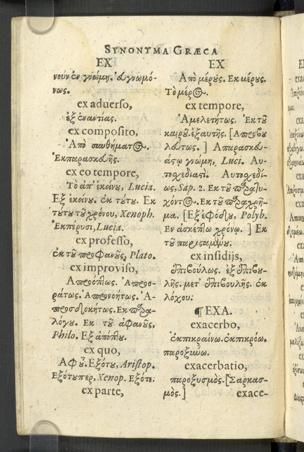 SYNONYMA GRÆCA
EX
νουν ἐν γνώμῃ. & γνωμό-
νως.
ex aduerso,
ἐξ ἐναντίας.
ex composito,
Ἀπὸ συνθήματος.
Ἐκπαρασκευῆς.
ex eo tempore,
Τὸ ἀπ' ἐκείνου, Lucia.
Ἐξ ἐκείνου. ἐκ τούτου. Ἐκ
τούτου τοῦ χρόνου, Xenoph.
Lucia.
ex professo,
ἐκ τοῦ προφανοῦς, Plato.
ex improviso,
Ἀπροόπτως. Ἀπροσ-
Ἀπρονοήτως. Ἀ-
προσδοκήτως. Ἐκ παρα-
λόγου. Ἐκ τοῦ ἀφανοῦς.
Philo.
ex quo,
Ἀφ' οὗ. Ἐξότου, Aristop.
Ἐξότουπερ, Xenop. Ἐξότε.
ex parte,
EX
Ἀπὸ μέρους. Ἐκ μέρους.
Τὸ μέρος.
ex tempore,
Ἀμελετήτως. Ἐκ τοῦ
καιροῦ. ἐξαυτῆς. [Ἀπροβου-
λεύτως.] Ἀπαρασκευ-
άστῳ γνώμῃ, Luci. Αὐ-
τοσχεδιαστί. Αὐτοσχεδί-
ως, Sap. 2. Ἐκ τοῦ παρατυ-
χόντος. Ἐκ τοῦ παραχρῆ-
μα. [Ἐξ ἐφόδου, Polyb.
χρόνῳ.] Ἐκ
τοῦ
ex insidijs,
Ἐπιβούλως. ἐξ ἐπιβου-
λῆς. μετ' ἐπιβουλῆς. ἐκ
λόχου.
¶ EXA.
exacerbo,
ἐκπικραίνω. ἐκπικρόω.
παροξύνω.
exacerbatio,
παροξυσμὸς. [Σαρκασ-
μὸς.]
exace-